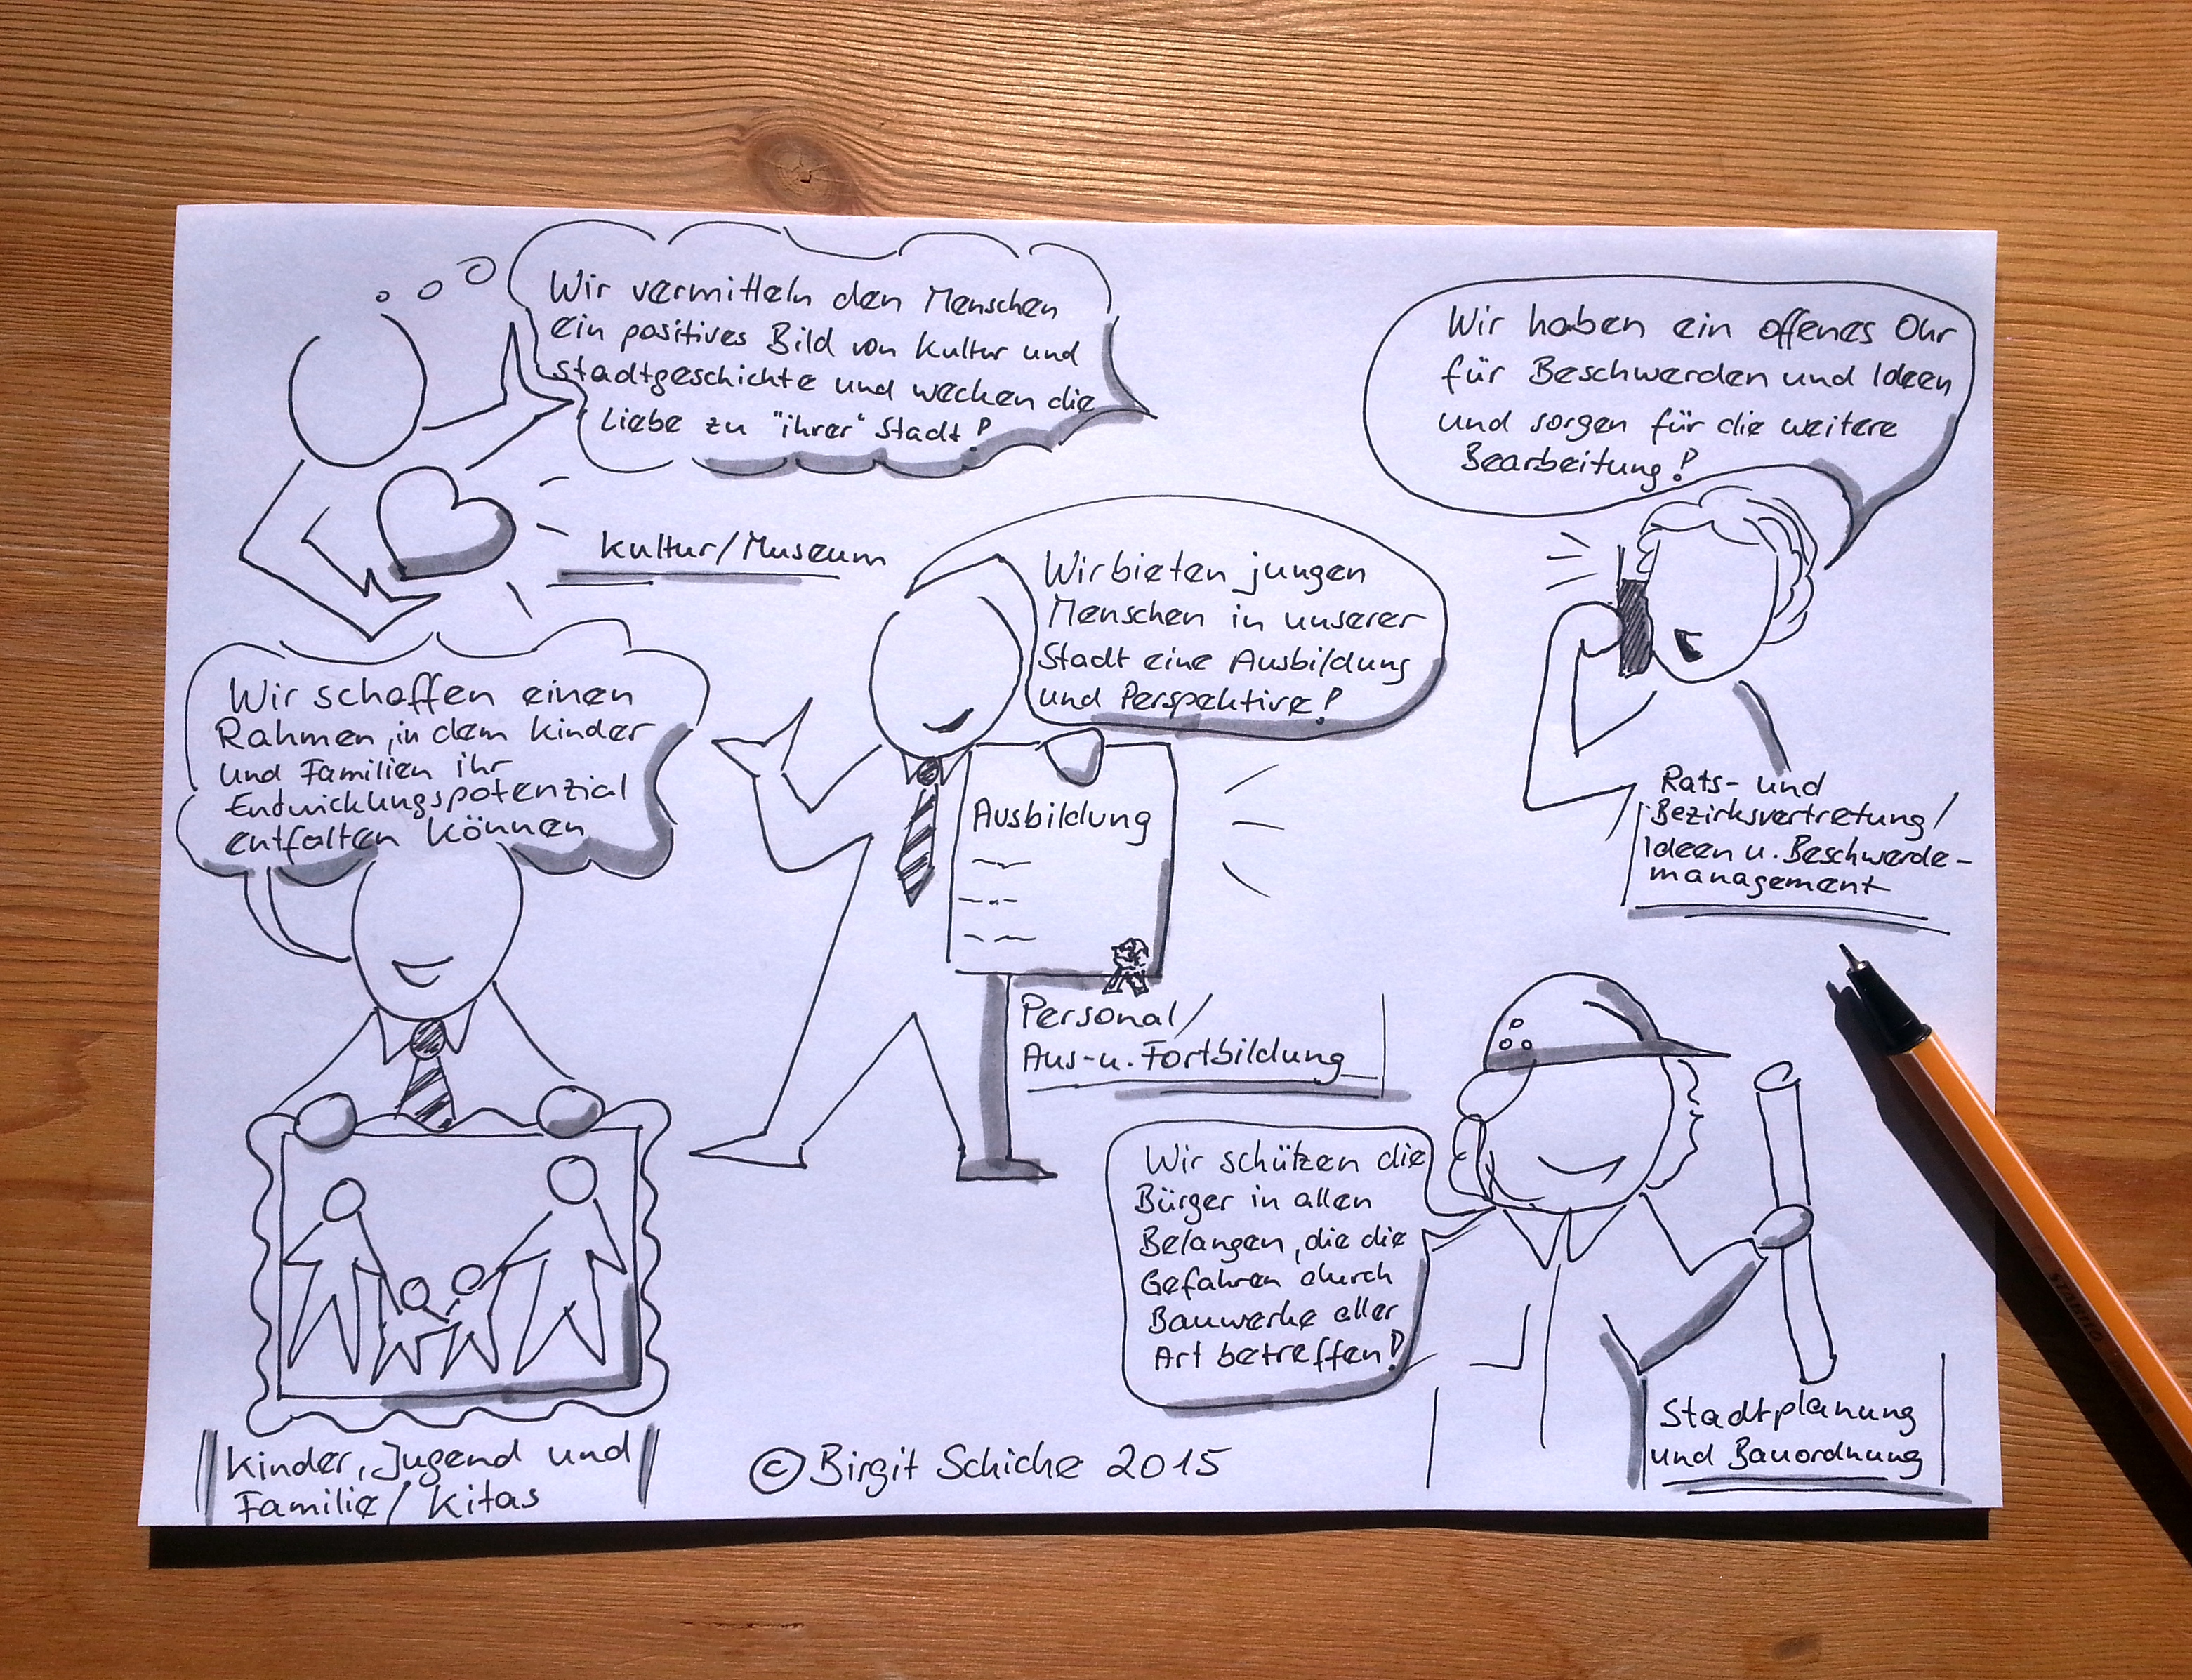 Wir vermitteln den Menschen
ein positives Bild von Kultur und
Stadtgeschichte und wecken die
Liebe zu "ihrer" Stadt!
Kultur/Museum
Wir haben ein offenes Ohr
für Beschwerden und Ideen
und sorgen für die weitere
Bearbeitung!
Rats- und
Bezirksvertretung/
Ideen u. Beschwerde-
management
Wir bieten jungen
Menschen in unserer
Stadt eine Ausbildung
und Perspektive!
Ausbildung
Personal/
Aus- u. Fortbildung
Wir schaffen einen
Rahmen, in dem Kinder
und Familien ihr
Entwicklungspotenzial
entfalten können
Kinder, Jugend und
Familie/Kitas
Wir schützen die
Bürger in allen
Belangen, die die
Gefahren durch
Bauwerke aller
Art betreffen!
Stadtplanung
und Bauordnung
© Birgit Schiche 2015